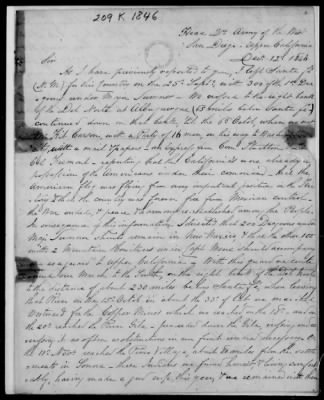 209 K. 1846
Head Qrs Army of the West
San Diego, Upper California
Decr 12th 1846
Sir
As I have previously reported to you, I left Santa fe
(N.M.) for this Country on the 25th Septr with 300 of the 1st Dra-
goons under Major Sumner – We crossed to the right bank
of the Del Norte at Albuquerque (65 miles below Santa fe)
continued down on that bank till the 6th Octr when we met
Mr Kit Carson, with a Party of 16 men, on his way to Washington
City with a mail & papers – an express from Como Stockton and
Col Fremont – reporting that the Californias were already in
possession of the Americans under their command; that the
American flag was flying from every important position in the
and that the country was forever free from Mexican control –
the war ended, & peace & harmony established among the People.
In consequence of this information I directed that 200 Dragoons under
Major Sumner should remain in New Mexico & that the other 100
with 2 Mountain Howitzers under Capt Moore should accompany me
as a guard to Upper California – With this guard we
our March to the South, on the right bank of the Del Norte
to the distance of about 230 miles below Santa fe, when leaving
that River on the 15th Octr in about the 33d of Lat we marched
westward for the Copper Mines which we reached on the 18th and on
the 20th reached the River Gila – proceeded down the Gila, crossing and re
crossing it as often as obstructions in our front
the 11th Novr reached the Pimos Village, about 80 miles from the settle-
ments in Sonora – these Indians we found honest & living comfort-
ably, having made a good crop this year, & we remained with them